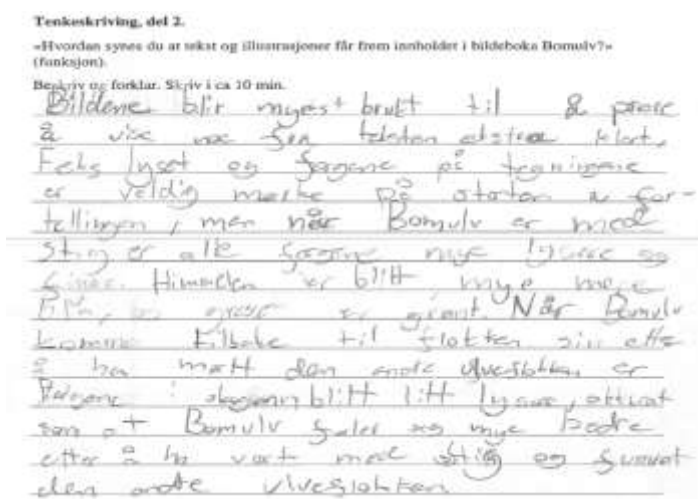 Tenkeskriving, del 2.
«Hvordan synes du at tekst og illustrasjoner får frem innholdet i bildeboka Bomulv?»
(funksjon).
Beskriv og forklar. Skriv i ca 10 min.
Bildene blir myest brukt til å prøve
å vise noe fra teksten ekstra klart,
Feks lyset og fargene på tegningene
er veldig mørke på starten av for-
tellingen, men når Bomulv er med
stig er alle fargene mye lysere og
Himmelen er blitt mye mere
blå, og gress er grønt. Når Bomulv
kommer tilbake til flokken sin etter
å ha møtt den andre ulveflokken er
fargene i skogenn blitt litt lysere, akkurat
som at Bomulv føler seg mye bedre
etter å ha vært med stig og funnet
den andre ulveflokken